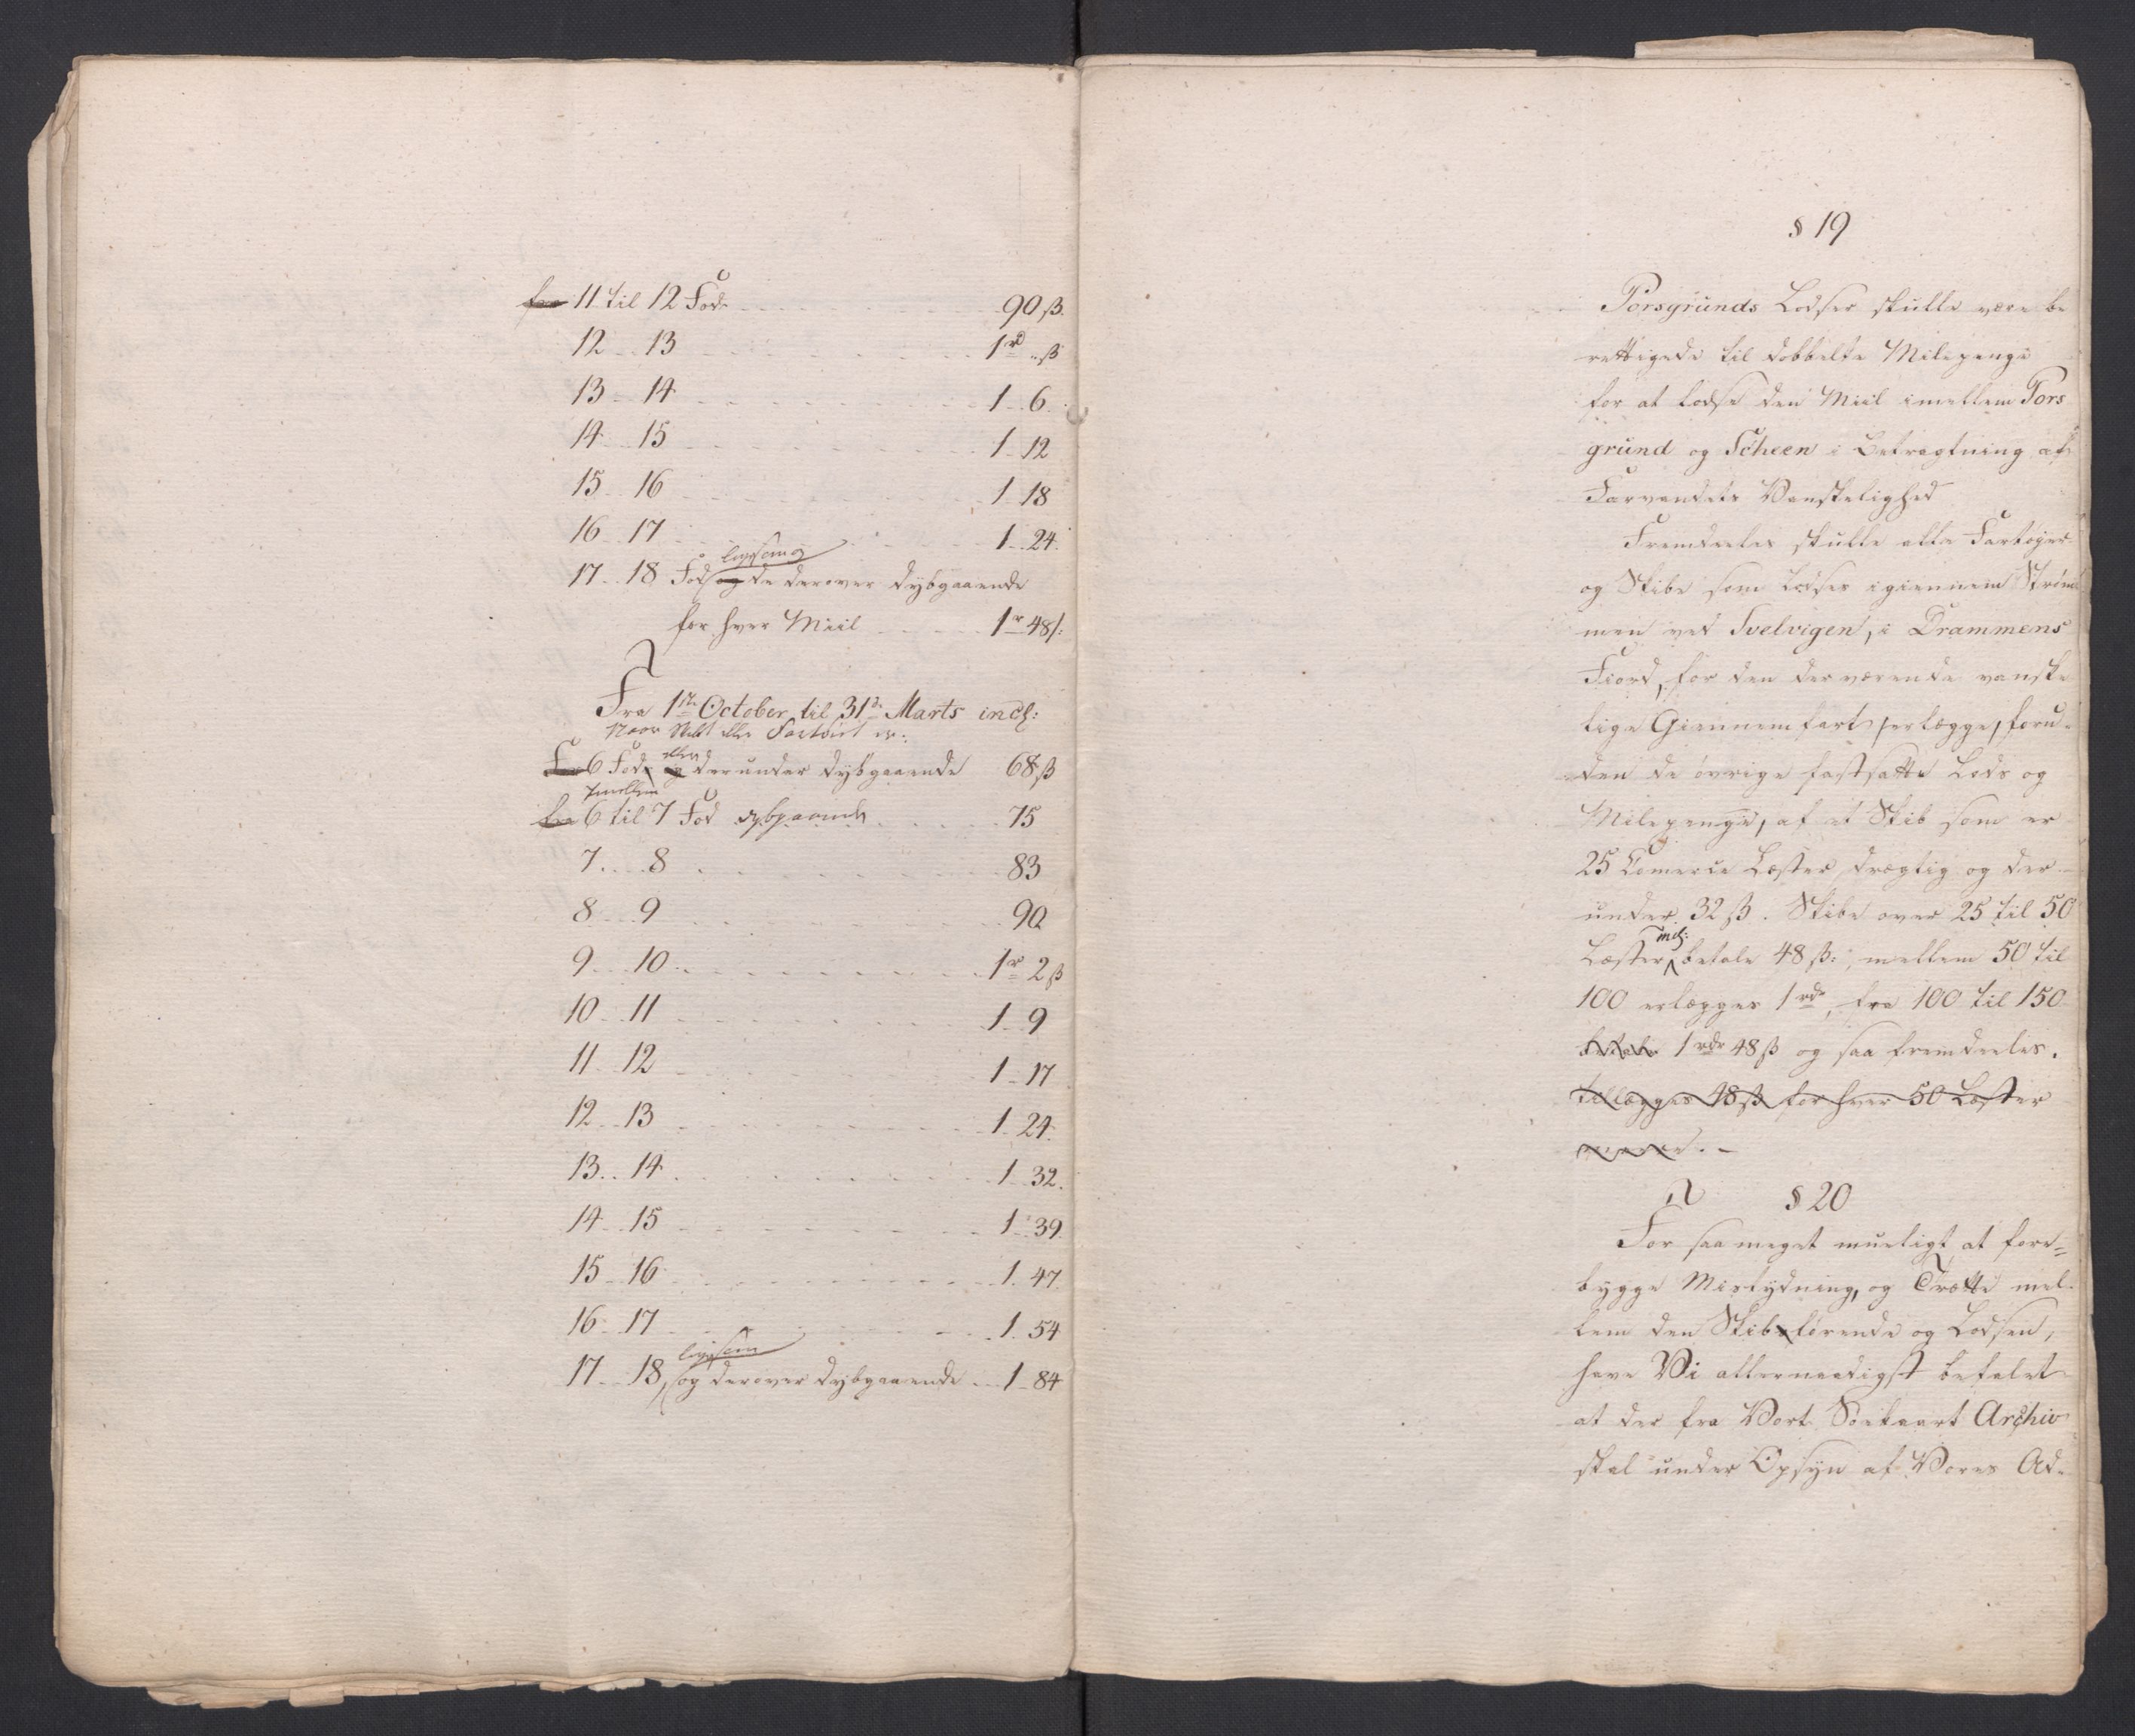 fra 11 til 12 Fod 90 ß.
12 13 1 rd „ ß
13 14 1 6
14 15 1 12
15 16 1 18
16 17 1 24
ligesom og
17 18 Fod og de derover dybgaaende
for hver Miil 1 r 48 ß:
Fra 1ste October til 31te Marts incl:
Naar Skibet eller Fartøiet er:
eller
For 6 Fod og derunder dybgaaende 68 ß
Imellem
fra 6 til 7 Fod dybgaaende 75
7 8 83
8 9 90
9 10 1 r 2 ß
10 11 1 9
11 12 1 17
12 13 1 24
13 14 1 32
14 15 1 39
15 16 1 47
16 17 1 54
ligesom
17 18 og derover dybgaaende 1 84
§ 19
Porsgrunds Lodser skulle være be
rettigede til dobbelte Milepenge
for at lodse den Miil imellem Pors
grund og Scheen i Betragtning af
Farvandets Vanskelighed
Fremdeeles skulle alle Fartøjer
og Skibe som lodses igiennem Strøm
men ved Svelvigen, i Drammens
Fiord, for den derværende vanske
lige Giennemfart erlægge, foru-
den de øvrige fastsatte Lods og
Milepenge, af et Skib som er
25 Comerce Læster drægtig og der
under 32 ß. Skibe over 25 til 50
incl:
Læster betale 48 ß:, mellem 50 til
100 erlægges 1 rdr, fra 100 til 150
betale 1 rdr 48 ß og saa fremdeeles.
tillægges 48 ß for hver 50 Læster
meere. -
§ 20
For saa meget mueligt at fore=
bygge Mistydning, og Trætte mel-
lem den Skibsførende og Lodsen,
have Vi allernaadigst befalet
at der fra Vort Søekaart Archiv
skal under Opsyn af Vores Ad-